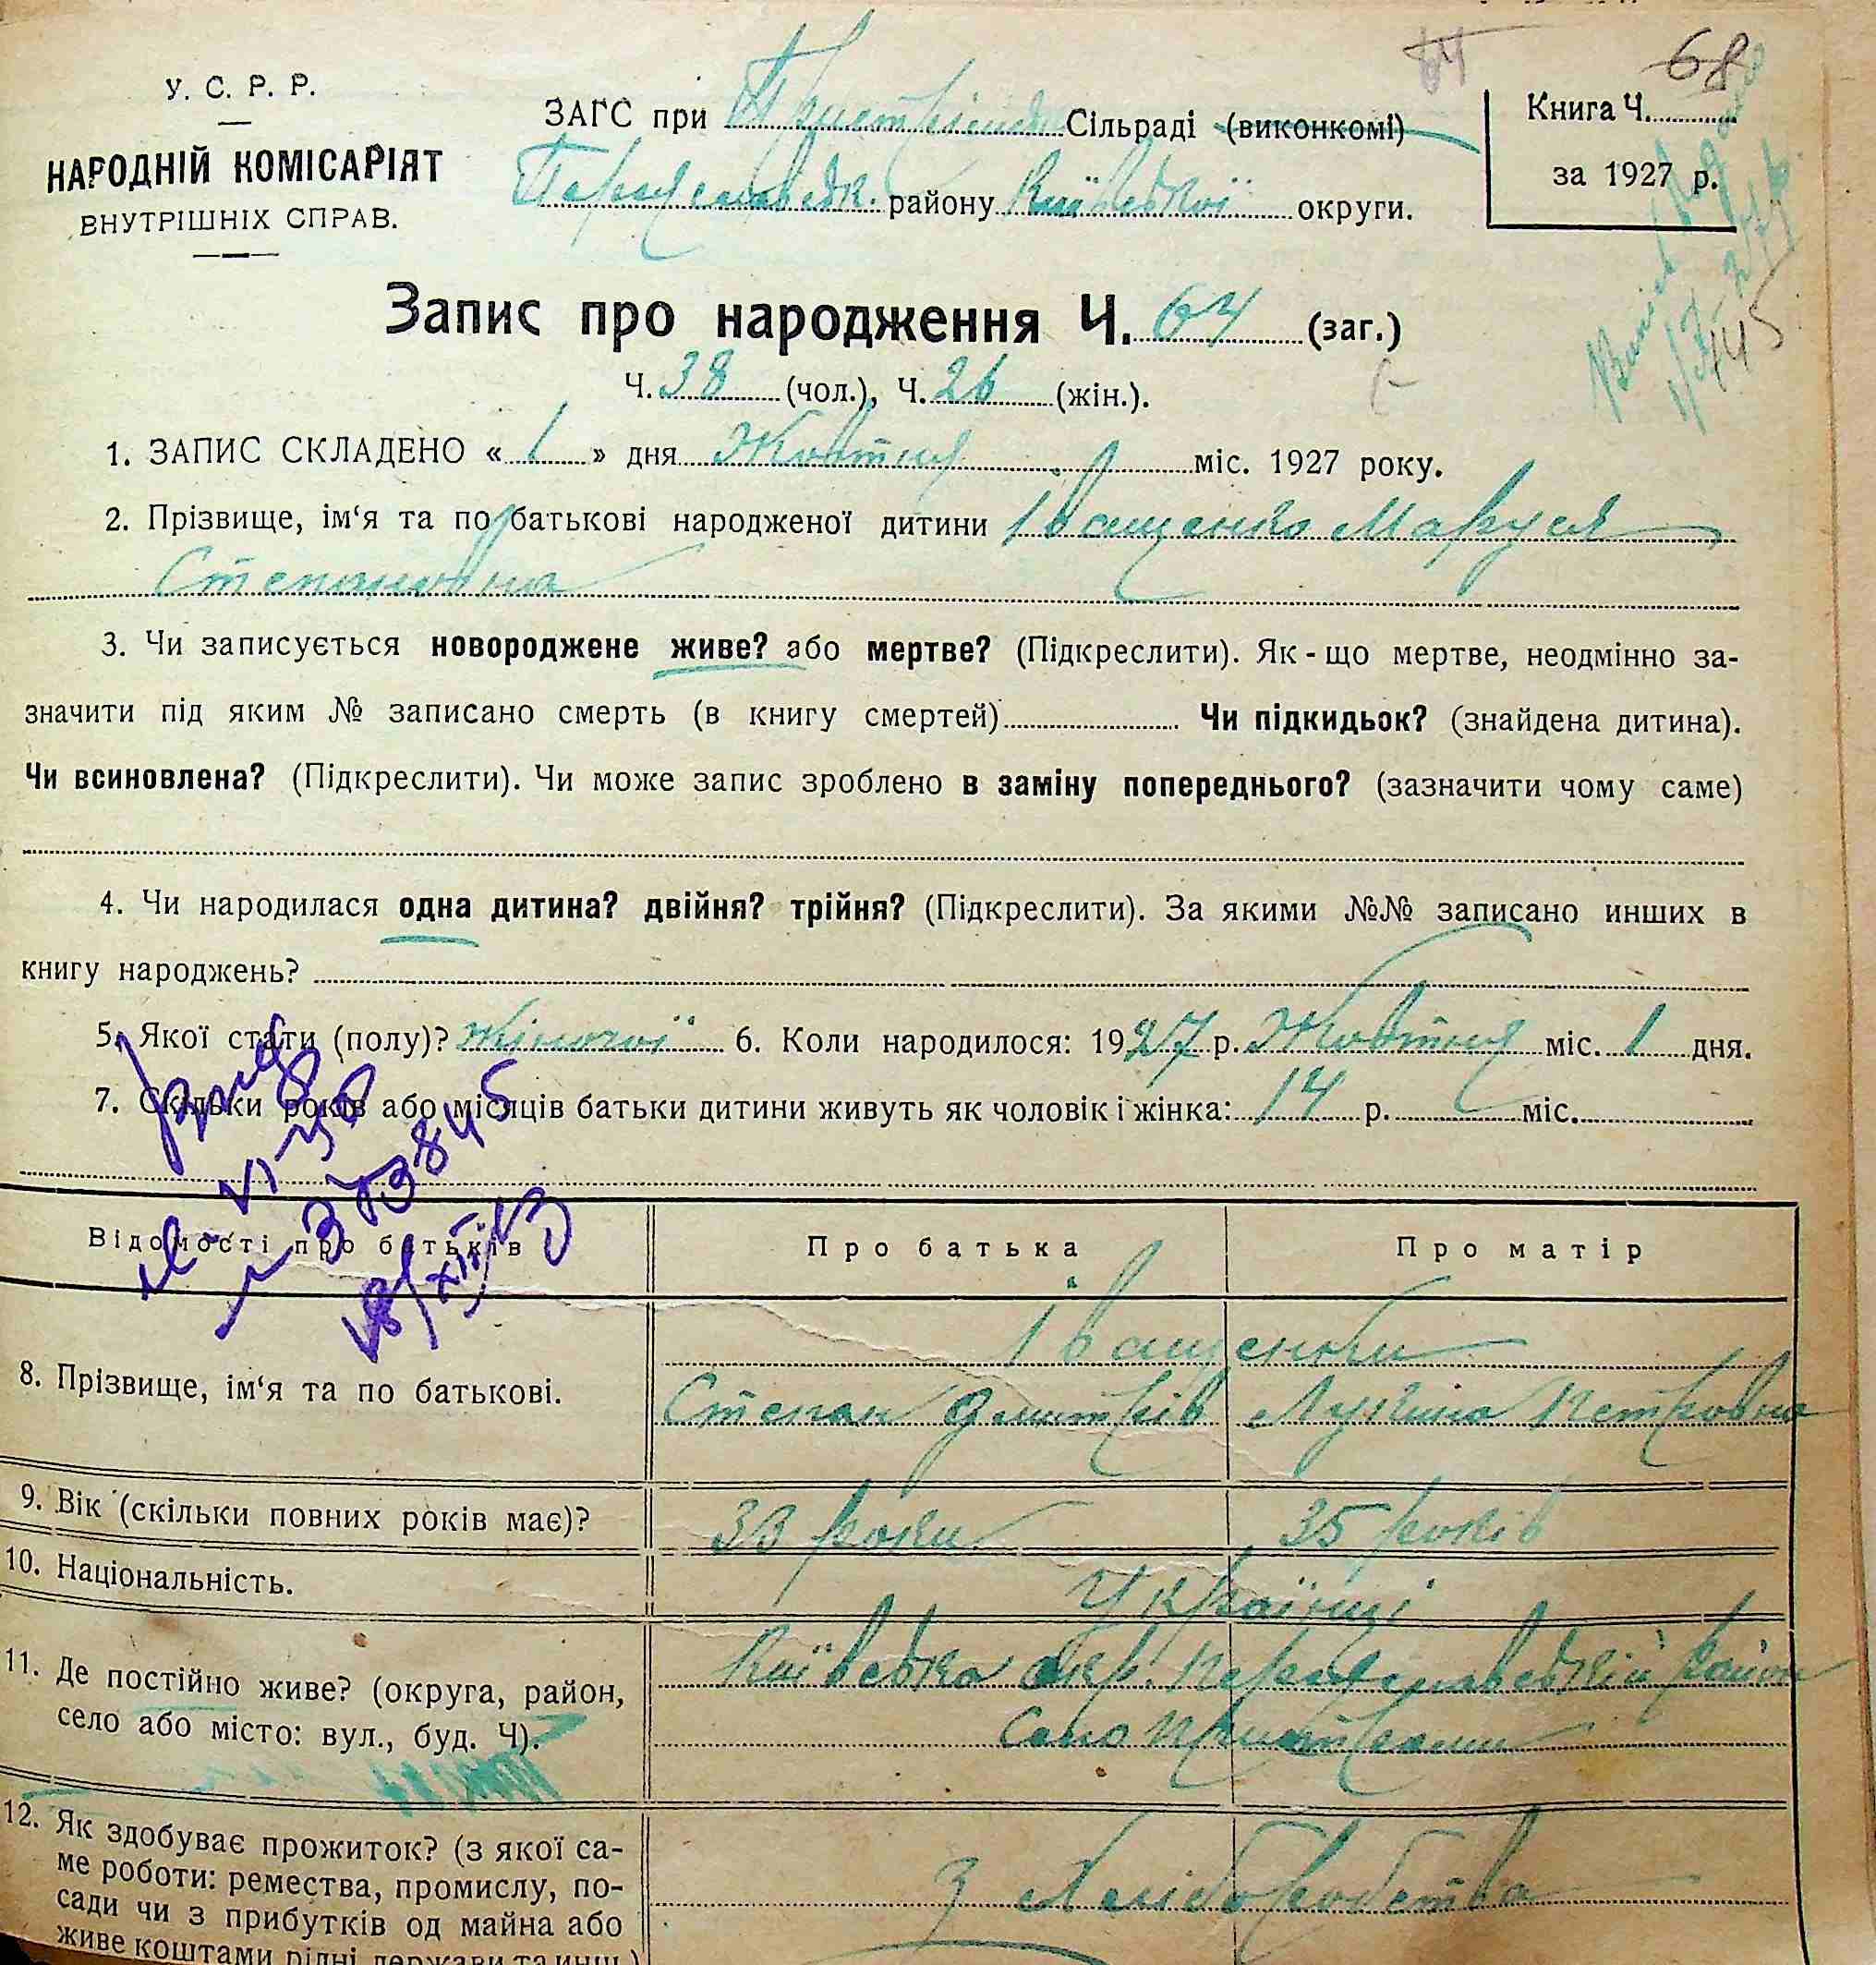 У. С. Р. Р.
НАРОДНІЙ КОМІСАРІЯТ
ВНУТРІШНІХ СПРАВ.
ЗАГС при Пристрімській Сільраді (виконкомі)
Переяславськ. району Київської округи.
68
Книга Ч.
за 1927 р.
Запис про народження Ч. 64 (заг.)
Ч. 38 (чол.), Ч. 26 (жін.).
1. ЗАПИС СКЛАДЕНО « 1 » дня Жовтня міс. 1927 року.
2. Прізвище, ім‘я та по батькові народженої дитини Іващенко Маруся
Степановна
3. Чи записується новороджене живе? або мертве? (Підкреслити). Як-що мертве, неодмінно за-
значити під яким № записано смерть (в книгу смертей) Чи підкидьок? (знайдена дитина).
Чи всиновлена? (Підкреслити). Чи може запис зроблено в заміну попереднього? (зазначити чому саме)
4. Чи народилася одна дитина? двійня? трійня? (Підкреслити). За якими №№ записано инших в
книгу народжень?
5. Якої стати (полу)? жіночої 6. Коли народилося: 1927 р. Жовтня міс. 1 дня.
7. Скільки років або місяців батьки дитини живуть як чоловік і жінка: 14 р. міс.
Відомості про батьків Про батька Про матір
8. Прізвище, ім‘я та по батькові. Іващенки
Степан Дмитрів Лукина Петровна
9. Вік (скільки повних років має)? 33 роки 35 років
10. Національність. Українці
11. Де постійно живе? (округа, район, Київська окр. Переяславський район
село або місто: вул., буд. Ч). село Пристроми
12. Як здобуває прожиток? (з якої са-
ме роботи: ремества, промислу, по- З хліборобства
сади чи з прибутків од майна або
живе коштами рідні, держави та инш.)